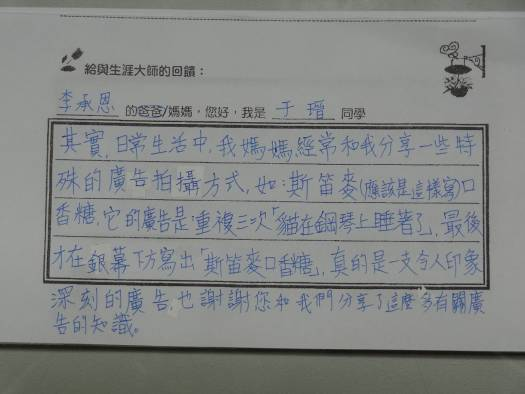 給與生涯大師的回饋：
李承恩 的爸爸/媽媽，您好，我是 于瑨 同學
其實，日常生活中，我媽媽經常和我分享一些特
殊的廣告拍攝方式，如：斯笛麥(應該是這樣寫)口
香糖，它的廣告是重複三次「貓在鋼琴上睡著了」，最後
才在銀幕下方寫出「斯笛麥口香糖」，真的是一支令人印象
深刻的廣告，也謝謝您和我們分享了這麼多有關廣
告的知識。